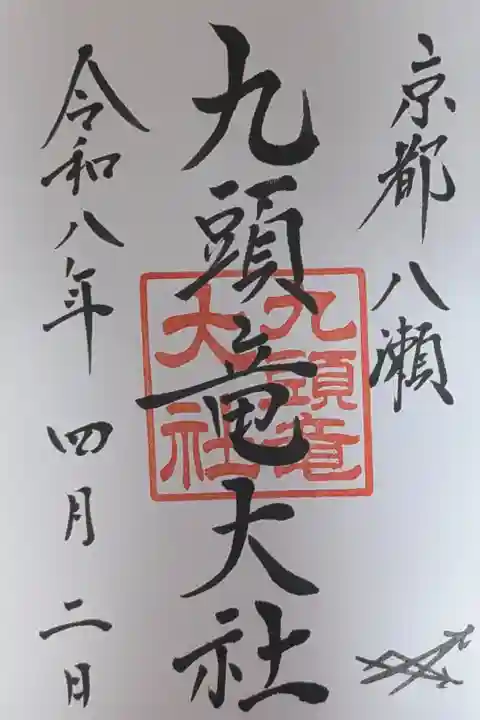 京都八瀬
九頭竜大社
九頭竜
大社
令和八年四月二日